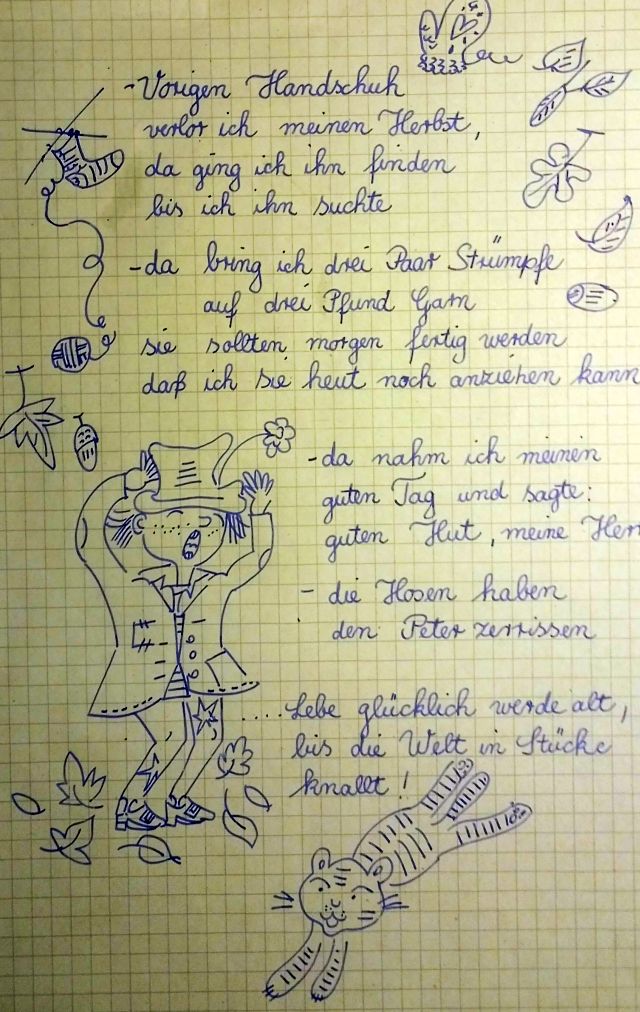 - Vorigen Handschuh
verlor ich meinen Herbst,
da ging ich ihn finden
bis ich ihn suchte
- da bring ich drei Paar Strümpfe
auf drei Pfund Garn
sie sollten morgen fertig werden
daß ich sie heut noch anziehen kann
- da nahm ich meinen
guten Tag und sagte:
guten Hut, meine Herr
- die Hosen haben
den Peter zerrissen
..... Lebe glücklich werde alt,
bis die Welt in Stücke
knallt!